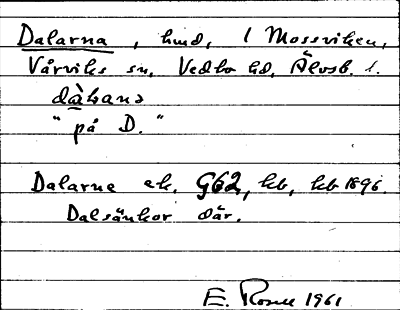 Dalarna, hmd, l Mossviken,
Vårviks sn, Vedbo hd, Älvsb. l.
dàɫana
"på D."
Dalarne ek. G62, hb, hb 1896.
Dalsänkor där.
E. Rosell 1961